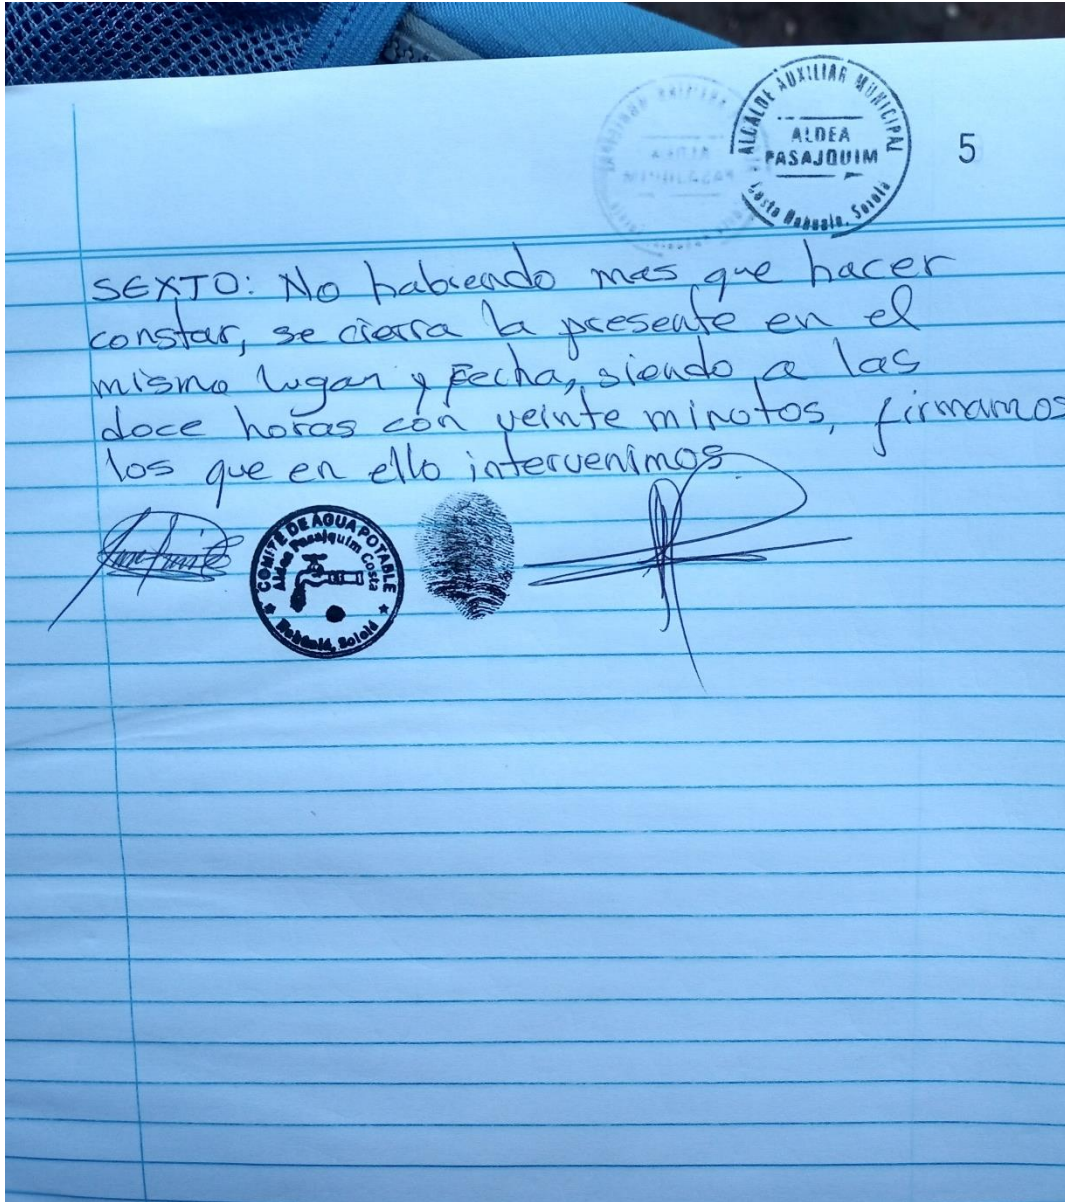 ALCALDE AUXILIAR MUNICIPAL
ALDEA
PASAJQUIM
Costa Nahuala, Sololá
5
SEXTO: No habiendo mas que hacer
constar, se cierra la presente en el
mismo lugar y Fecha, siendo a las
doce horas con veinte minutos, firmamos
los que en ello intervenimos
COMITÉ DE AGUA POTABLE
Aldea Pasajquim Costa
Nahualá, Sololá